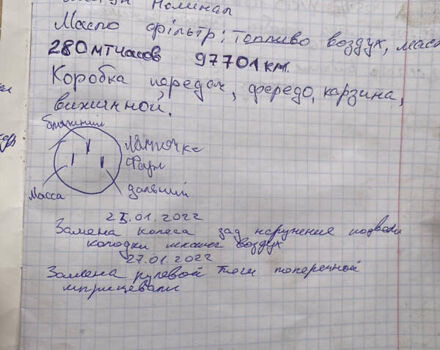 Номинал
Масло фільтр: топливо воздух, масл
280 мтчасов 97701 км.
Коробка передач, фередо, карзина,
вижимной.
ближний
Лампочке
Фари
Масса
дальний
25.01.2022
Замена колеса зад наружение
колодки воздух
27.01.2022
Замена рулевой тяги поперечной
шприцевали